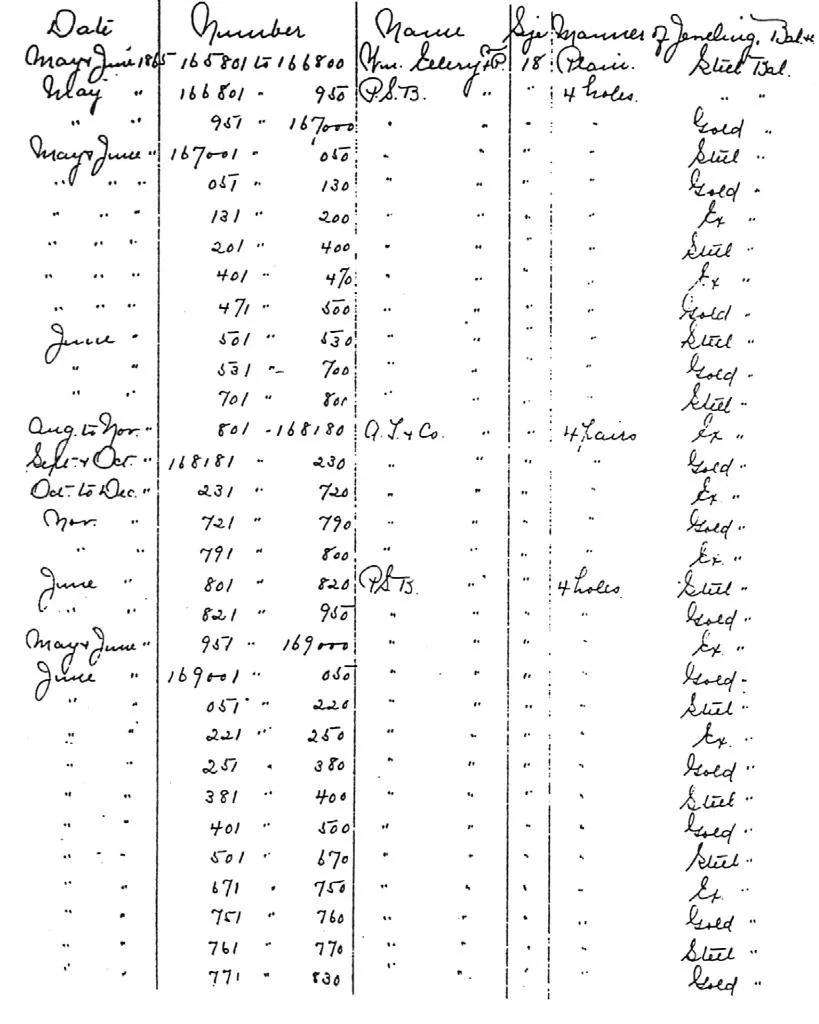 Date Number Name Size Manner of Jeweling. Bal.
May & June 1865 165801 to 166800 Wm. Ellery F.P. 18 Plain. Steel Bal.
May " 166801 " 950 P.S.B. " " 4 holes. " "
" " 951 " 167,000 " " " " Gold "
May & June " 167001 " 050 " " " " Steel "
" " " 051 " 130 " " " " Gold "
" " " 131 " 200 " " " " Ex "
" " " 201 " 400 " " " " Steel "
" " " 401 " 470 " " " " Ex "
" " " 471 " 500 " " " " Gold "
June " 501 " 530 " " " " Steel "
" " 531 " 700 " " " " Gold "
" " 701 " 800 " " " " Steel "
Aug. to Nov. " 801 - 168180 A. T. & Co. " " 4 pairs Ex "
Sept. & Oct. " 168181 " 230 " " " " Gold "
Oct. to Dec. " 231 " 720 " " " " Ex "
Nov. " 721 " 790 " " " " Gold "
" " 791 " 800 " " " " Ex. "
June " 801 " 820 P.S.B. " " 4 holes. Steel "
" " 821 " 950 " " " " Gold "
May & June " 951 " 169000 " " " " Ex. "
June " 169001 " 050 " " " " Gold "
" " 051 " 220 " " " " Steel "
" " 221 " 250 " " " " Ex. "
" " 251 " 380 " " " " Gold "
" " 381 " 400 " " " " Steel "
" " 401 " 500 " " " " Gold "
" " 501 " 670 " " " " Steel "
" " 671 " 750 " " " " Ex. "
" " 751 " 760 " " " " Gold "
" " 761 " 770 " " " " Steel "
" " 771 " 830 " " " " Gold "